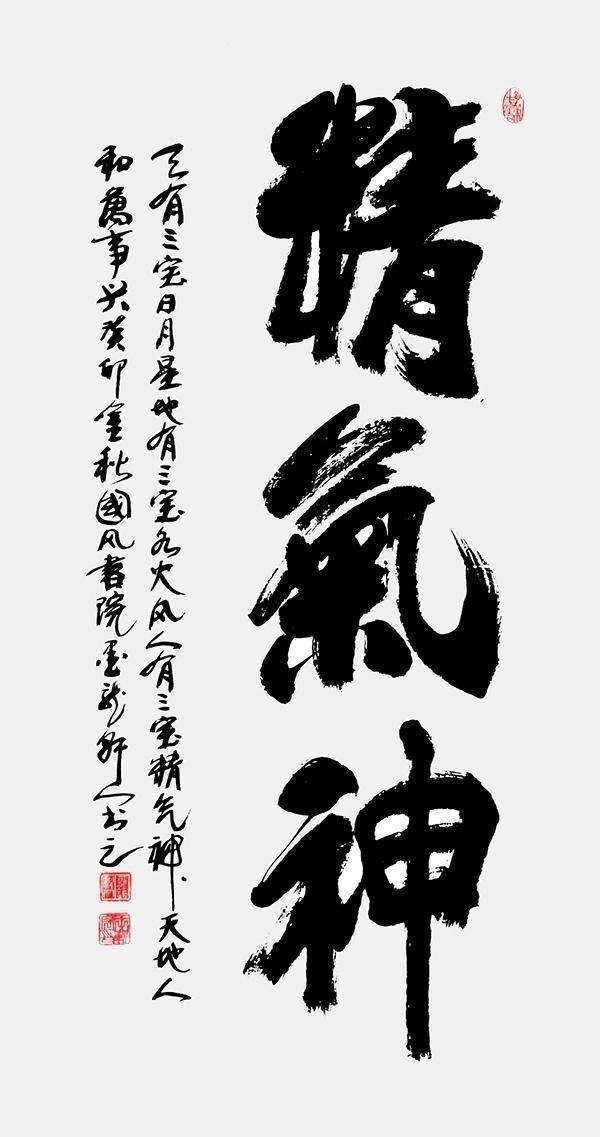 精氣神
天有三宝日月星地有三宝水火风人有三宝精气神天地人
和萬事兴癸卯金秋國风書院墨龙轩人书之